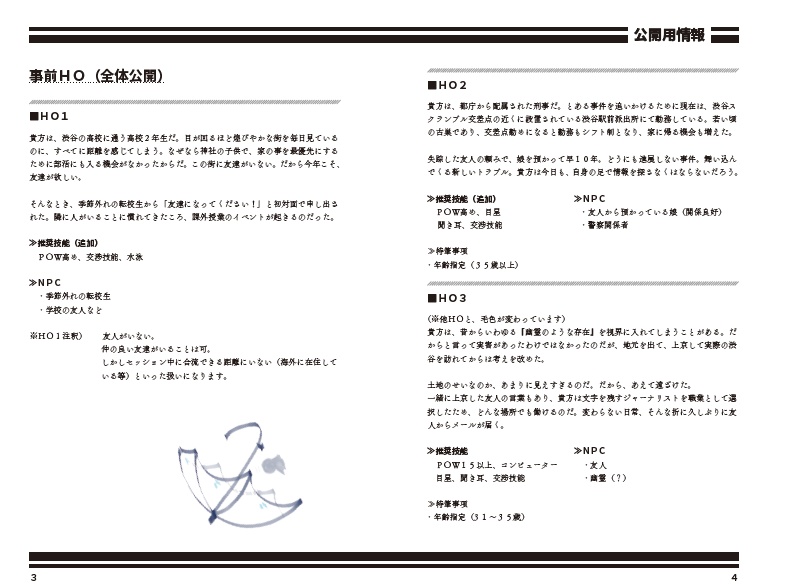 公開用情報
事前ＨＯ（全体公開）
■ＨＯ１
貴方は、渋谷の高校に通う高校２年生だ。目が回るほど煌びやかな街を毎日見ている
のに、すべてに距離を感じてしまう。なぜなら神社の子供で、家の事を最優先にする
ために部活にも入る機会がなかったからだ。この街に友達がいない。だから今年こそ、
友達が欲しい。
そんなとき、季節外れの転校生から「友達になってください！」と初対面で申し出さ
れた。隣に人がいることに慣れてきたころ、課外授業のイベントが起きるのだった。
≫推奨技能（追加）
ＰＯＷ高め、交渉技能、水泳
≫ＮＰＣ
・季節外れの転校生
・学校の友人など
※ＨＯ１注釈） 友人がいない。
仲の良い友達がいることは可。
しかしセッション中に合流できる距離にいない（海外に在住して
いる等）といった扱いになります。
■ＨＯ２
貴方は、都庁から配属された刑事だ。とある事件を追いかけるために現在は、渋谷ス
クランブル交差点の近くに設置されている渋谷駅前派出所にて勤務している。若い頃
の古巣であり、交差点勤めになると勤務もシフト制となり、家に帰る機会も増えた。
失踪した友人の頼みで、娘を預かって早１０年。どうにも進展しない事件。舞い込ん
でくる新しいトラブル。貴方は今日も、自身の足で情報を探さなくはならないだろう。
≫推奨技能（追加） ≫ＮＰＣ
ＰＯＷ高め、目星 ・友人から預かっている娘（関係良好）
聞き耳、交渉技能 ・警察関係者
≫特筆事項
・年齢指定（３５歳以上）
■ＨＯ３
（※他ＨＯと、毛色が変わっています）
貴方は、昔からいわゆる『幽霊のような存在』を視界に入れてしまうことがある。だ
からと言って実害があったわけではなかったのだが、地元を出て、上京して実際の渋
谷を訪れてからは考えを改めた。
土地のせいなのか、あまりに見えすぎるのだ。だから、あえて遠ざけた。
一緒に上京した友人の言葉もあり、貴方は文字を残すジャーナリストを職業として選
択したため、どんな場所でも働けるのだ。変わらない日常、そんな折に久しぶりに友
人からメールが届く。
≫推奨技能 ≫ＮＰＣ
ＰＯＷ１５以上、コンピューター ・友人
目星、聞き耳、交渉技能 ・幽霊（？）
≫特筆事項
・年齢指定（３１～３５歳）
3
4